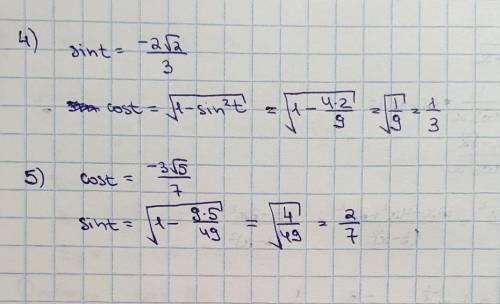 4) sint = -2√2/3
cost = √(1-sin²t) = √(1 - 4·2/9) = √(1/9) = 1/3
5) cost = -3√5/7
sint = √(1 - 9·5/49) = √(4/49) = 2/7